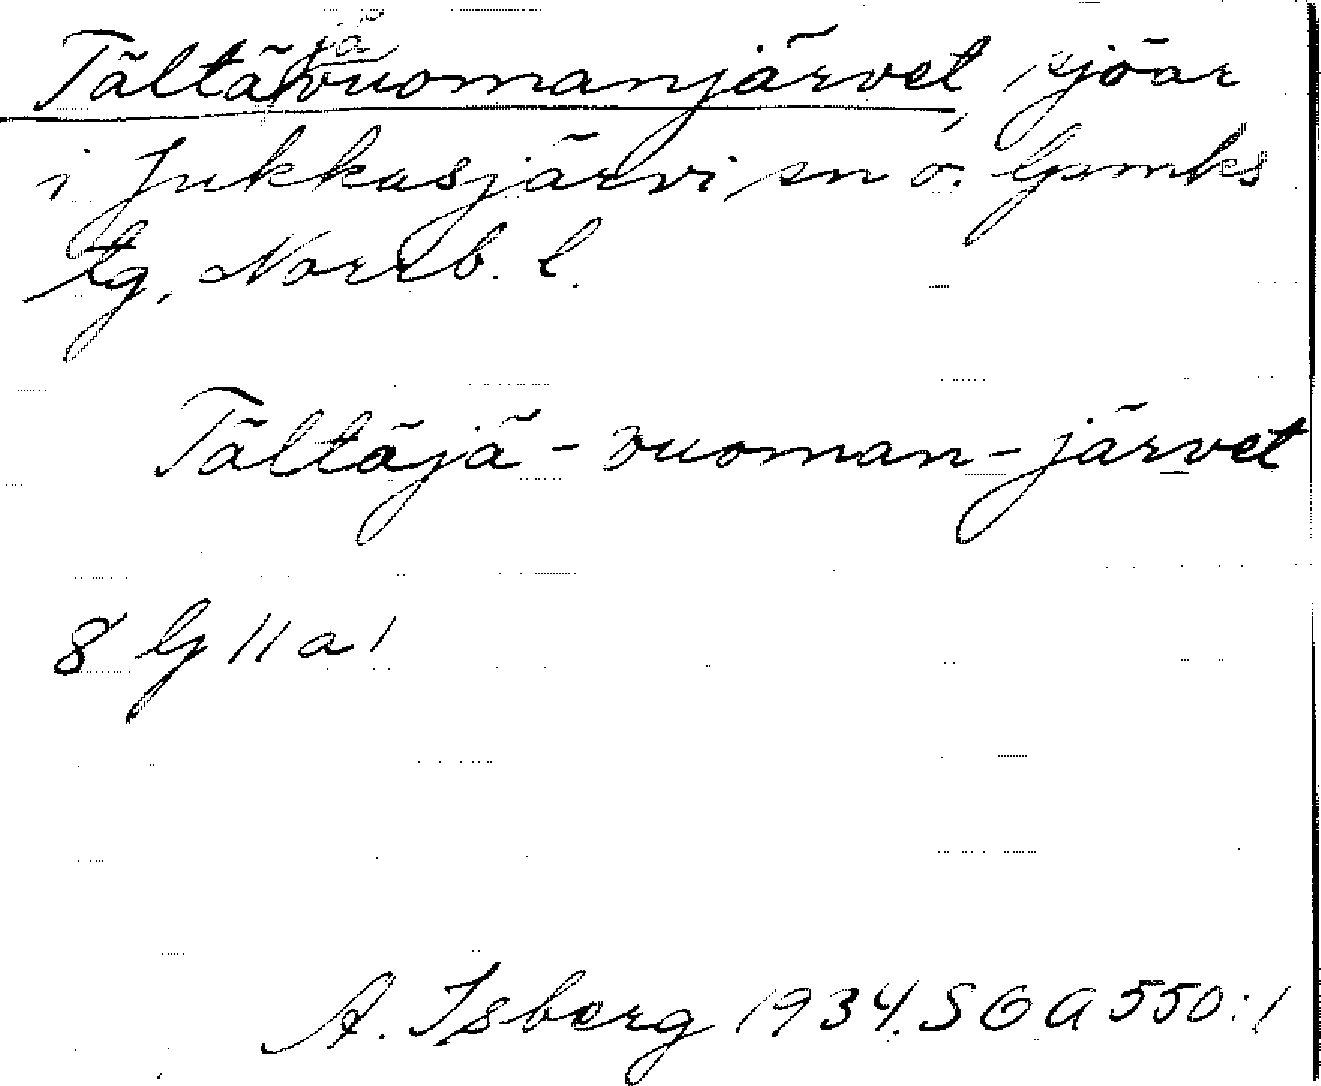 Tältäjävuomanjärvet, sjöar
i Jukkasjärvi sn o. lpmks
tg, Norrb. l.
Tältäjä-vuoman-järvet
8 G 11 a 1
A. Isberg 1934. SOA 550:1